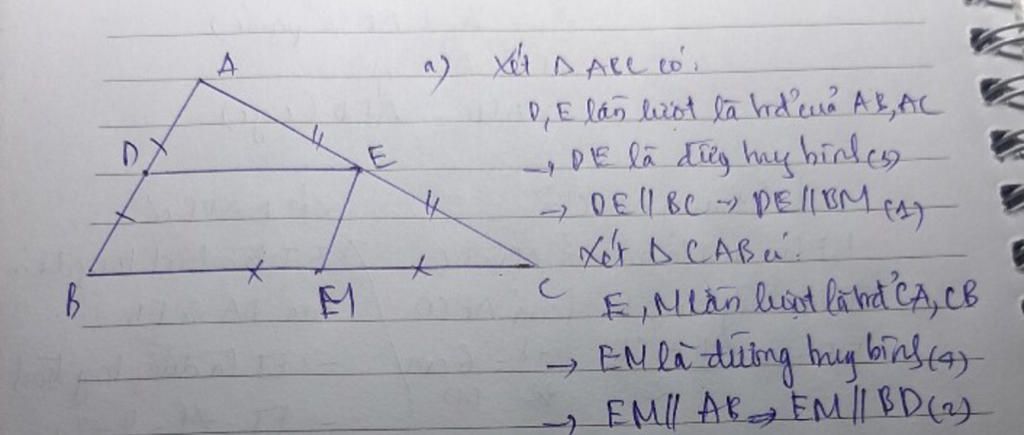 A
D
E
B
EM
C
a) Xét Δ ABC có:
D, E lần lượt là trđ' của AB, AC
→ DE là đường trung bình (3)
→ DE // BC → DE // BM (1)
Xét Δ CAB có:
E, M lần lượt là trđ' CA, CB
→ EM là đường trung bình (4)
→ EM // AB → EM // BD (2)